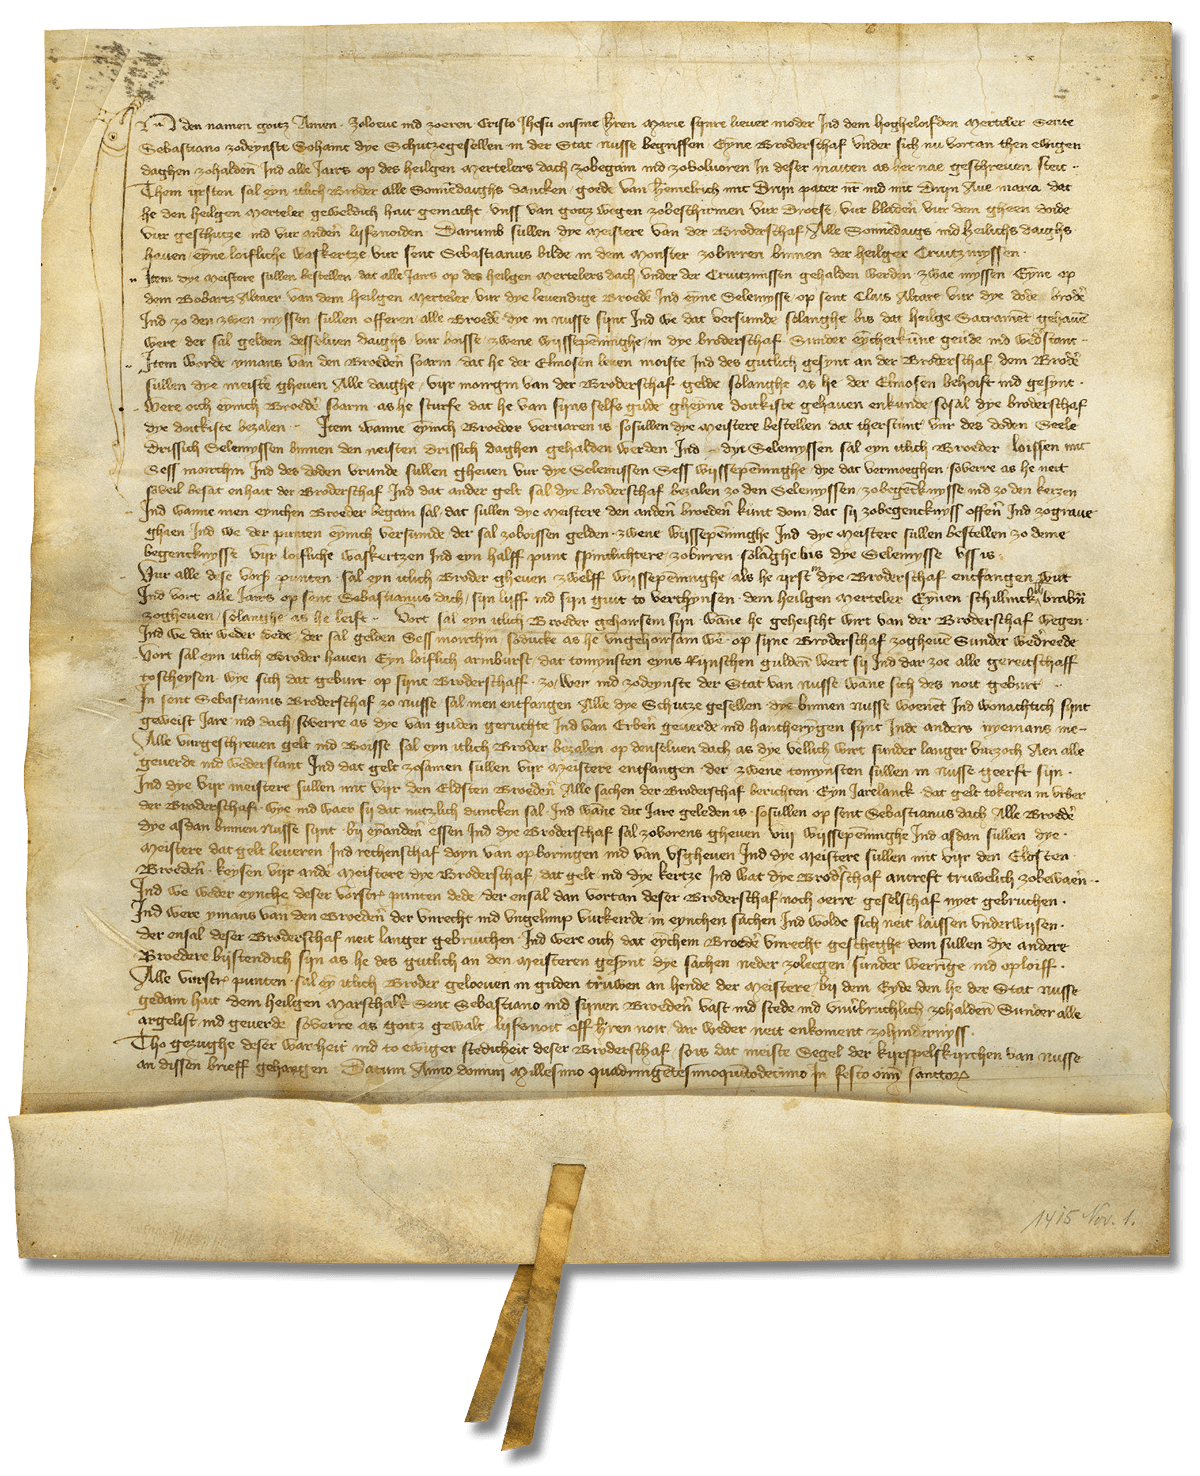 In den namen goitz Amen. Zoloeve ind zoeren Cristo Jhesu onsme hren Marie sijnre liever moder Ind dem hogheloifden Merteler Sente
Sebastiano zodeynste Sohaint dye Schutzegesellen in der Stat Nusse begriffen Eyne Broderschaf vnder sich nu vortan then ewigen
daghen zohalden Ind alle Jairs op des heilgen Mertelers dach zobegain ind zovolvoren In deser maiten as her nae geschreven steit
Them yrsten sal eyn itlich Bruder alle Sonnedaighs dancken goede van hemelrich mit Drijn pater nr ind mit Drijn Ave maria dat
he den heilgen Merteler geweldich hait gemacht vnss van goitz wegen zobeschirmen vur Droese vur bladen vur dem gheen dode
vur geschutze ind vur anden lijfsnoiden Darumb sullen dye Meistere van der Broderschaf Alle Sonnedaigs ind heilichs daighs
haven eyne loifliche waskertze vur sent Sebastianus bilde in dem Monster zobirren binnen der heilger Cruitzmyssen
Item dye Meistere sullen bestellen dat alle Jairs op des heilgen Mertelers dach vnder der Cruitzmissen gehalden werden zwae myssen Eyne op
dem Bobartz Altaer van dem heilgen Merteler vur dye levendige Broede Ind eyne Selemysse op sent Clais Altare vur dye dode brode
Ind zo den zwen myssen sullen offeren alle Broede dye in Nusse sijnt Ind we dat versumde solanghe bis dat heilge Sacrament gehaven
were der sal gelden desselven daighs vur boisse zwene wijssepenninghe in dye broderschaf Sunder eycherkune geude ind wedstant
Item worde ymans van den Broeden soarm dat he der Elmosen leven moiste Ind des gutlich gesynt an der Broderschaf dem Brode
sullen dye meiste gheven Alle daighe vijr morgin van der Broderschaf gelde solanghe as he der Elmosen behoift ind gesynt
Were oich eynich Broede soarm as he sturfe dat he van sijns selfs gude gheyne doitkiste gehaven enkunde so sal dye broderschaf
dye doitkiste bezalen Item wanne eynich Broeder vervaren is so sullen dye Meistere bestellen dat therstunt vur des doden Seele
Drissich Selemyssen binnen den neisten Drissich daghen gehalden werden Ind dijt Selemyssen sal eyn itlich Broeder loissen mit
Sess morchin Ind des doden vrunde sullen gheven vur dye Selemissen Sess wijssepenninghe dye dat vermoeghen soverre as he neit
soveil besat enhait der Broderschaf Ind dat ander gelt sal dye broderschaf bezalen zo den Selemyssen zobegencknysse ind zo den kerzen
Ind wanne men eynchen Broeder begain sal dat sullen dye Meistere den anden broeden kunt doin dat sij zobegencknyss offen Ind zograve
ghaen Ind we der punten eynich versumde der sal zoboissen gelden zwene wijssepenninghe Ind dye Meistere sullen bestellen zo deme
begencknysse vijr loifliche waskertzen Ind eyn halff punt spintlichtere zobirren solaghe bis dye Selemysse vss is
Vur alle dese vorss punten sal eyn itlich Broder gheven zwelff wijssepenninghe als he yrst in dye Broderschaf entfangen wirt
Ind vort alle Jairs op sent Sebastianus dach sijn lijff ind sijn guit to verthynsen dem heilgen Merteler Eynen schillinck brabn
zogheven solanghe as he leift Vort sal eyn itlich Broeder gehorsem sijn wane he geheischt wirt van der Broderschaf wegen
Ind we dar weder dede der sal gelden Sess morchin soducke as he vngehoirsam we op sijne Broderschaf zogheve Sunder wedreede
Vort sal eyn itlich Broder haven Eyn loiflich armburst dat tomynsten eyns Rijnschen gulden wert sij Ind dar zoe alle gereitschaff
toscheysen wye sich dat geburt op sijne Broderschaff zo weer ind zodeynste der Stat van Nusse wane sich des noit geburt
In sent Sebastianus Broderschaf zo Nusse sal men entfangen Alle dye Schutze gesellen dye binnen Nusse woenent Ind wonachtich sijnt
geweist Jare ind dach soverre as dye van guden geruchte Ind van Erben geverde ind hantherijngen sijnt Inde anders nyemans me
Alle vurgeschreven gelt ind Boisse sal eyn itlich Broder bezalen op denselven dach as dye vellich wirt sunder langer vurzoch Aen alle
geverde ind wederstant Ind dat gelt zosamen sullen vijr Meistere entfangen der zwene tomynsten sullen in Nusse geerft sijn
Ind dye vijr meistere sullen mit vijr den Eldsten Broeden Alle sachen der Broderschaf berichten Eyn Jarelanck dat gelt tokeren in vrber
der Broderschaf wye ind waer sij dat nutzlich duncken sal Ind wane dat Jare geleden is so sullen op sent Sebastianus dach Alle Broede
dye asdan binnen Nusse sijnt bij eyanden essen Ind dye Broderschaf sal zovorens gheven viij wijssepenninghe Ind asdan sullen dye
Meistere dat gelt leveren Ind rechenschaf doyn van opboringen ind van vsgheven Ind dye Meistere sullen mit vijr den Elosten
Broeden keysen vijr ande Meistere dye Broderschaf dat gelt ind dye kertze Ind wat dye Brodschaf antreft truwelich zobewaen
Ind we weder eynche deser vorscr punten dede der ensal dan vortan deser Broderschaf noch oerre geselschaf nyet gebruchen
Ind were ymans van den Broeden der vnrecht ind vngelimp vurkeirde in eynchen sachen Ind wolde sich neit laissen vnderwijsen
der ensal deser Broderschaf neit langer gebruichen Ind were oich dat eychem Broede vnrecht geschieghe dem sullen dye andere
Broedere bijstendich sijn as he des gutlich an den Meisteren gesynt dye sachen neder zoleegen sunder werrnge ind oploiff
Alle vurscr punten sal ey itlich Broder geloeven in guden truwen an hende der Meistere bij dem Eyde den he der Stat Nusse
gedain hait dem heilgen Marschalk Sent Sebastiano ind sijnen Broeden vast ind stede ind vnverbruchlich zohalden Sunder alle
argelist ind geverde soverre as goitz gewalt lijfsnoit off hren noit dar weder neit enkoment zohindernyss
Tho gezughe deser warheit ind to ewiger stedicheit deser Broderschaf so is dat meiste Segel der kijrspelskijrchen van Nusse
an dissen brieff gehangen Datum Anno domini Millesimo quadringetesimoquitodecimo In festo omi sanctor
1415 Nov. 1.